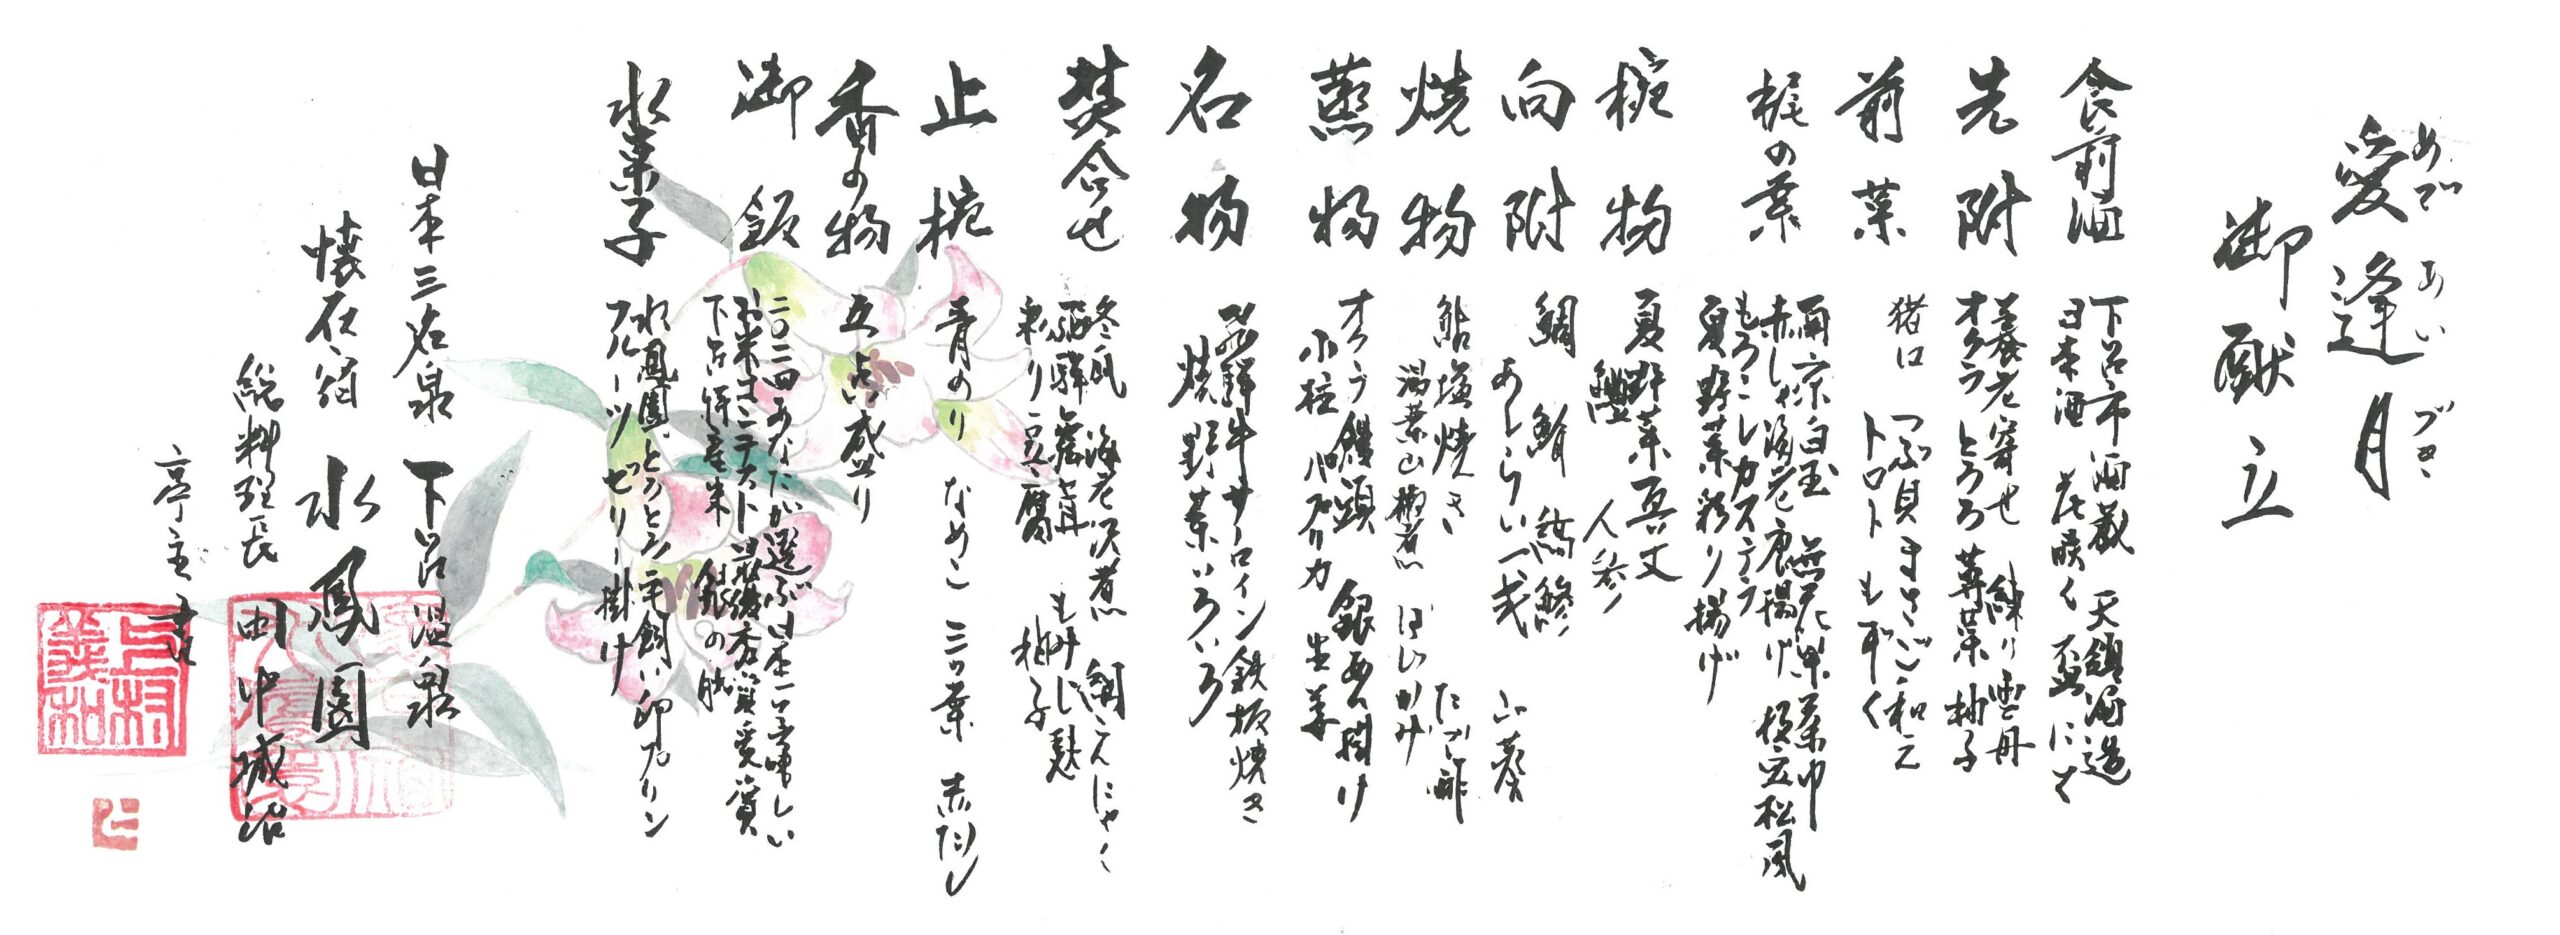 愛逢月
めであいづき
御献立
食前酒
下呂市酒蔵 天領酒造
日本酒 花暖く盃にて
先附
養老寄せ 練り雲丹
オクラ とろろ 蓴菜 柚子
前菜
猪口 つぶ貝まさご和え
トロトロもずく
梶の葉
雨京白玉 無花果茶巾
赤しゃ海老唐揚げ 枝豆松風
もろこしカステラ
夏野菜彩り揚げ
椀物
夏野菜真丈
鱧 人参
向附
鯛 鮪 縞鯵
あしらい一式 山葵
焼物
鮎塩焼き たで酢
湯葉山椒煮 はじかみ
蒸物
オクラ饅頭 銀あん掛け
小柱 パプリカ 生姜
名物
飛騨牛サーロイン鉄板焼き
焼野菜いろいろ
焚合せ
冬瓜 海老沢煮 絹こんにゃく
飛騨 もみじ麩
彩り豆腐 柚子
止椀
青のり なめこ 三つ葉 赤だし
香の物
五点盛り
御飯
二〇二四あなたが選ぶ日本一美味しい
お米コンテスト 最優秀賞受賞
下呂特産米 銀の朏
水菓子
水鳳園とろとろ平飼い卵プリン
フルーツゼリー掛け
日本三名泉 下呂温泉
懐石宿 水鳳園
総料理長 田中城治
亭主
上村
義和